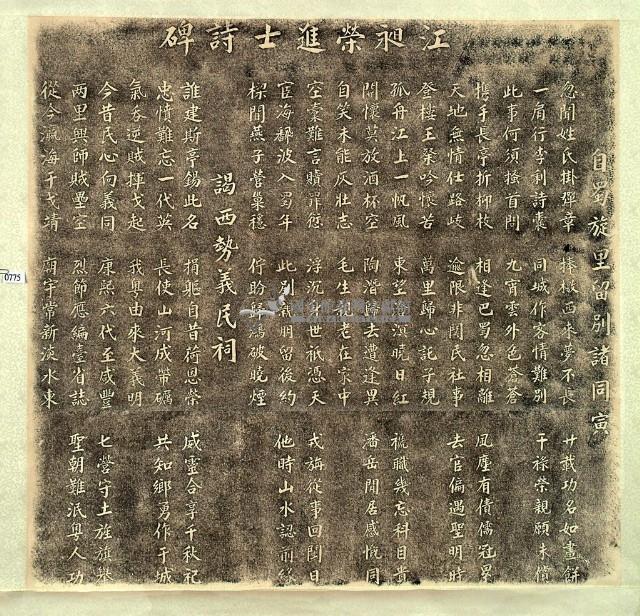 江昶榮進士詩碑
自蜀旋里留別諸同寅
忽聞姓氏掛彈章 捧檄西來夢不長 廿載功名如畫餅
一肩行李剩詩囊 同城作客情難別 干祿榮親願未償
此事何須搔首問 九霄雲外色蒼蒼
攜手長亭折柳枝 相逢巴蜀忽相離 風塵有債儒冠累
天地無情仕路歧 逾限非關民社事 去官偏遇聖明時
登樓王粲吟懷苦 萬里歸心託子規
孤舟江上一帆風 東望滄溟曉日紅 褫職幾忘科目貴
關懷莫放酒杯空 陶潛歸去遭逢異 潘岳閒居感慨同
自笑未能灰壯志 毛生親老在家中
空橐難言贖罪愆 浮沉身世祇憑天 戎旃從事回閩日
宦海翻波入蜀年 此別明留後約 他時山水認前緣
樑間燕子營巢穩 佇盼歸鴻破曉煙
謁西勢義民祠
誰建斯亭錫此名 捐軀自昔荷恩榮 威靈合享千秋祀
忠憤難忘一代英 長使山河成帶礪 共知鄉勇作干城
氣吞逆賊揮戈起 我粵由來大義明
今昔民心向義同 康熙六代至咸豐 七營守土旌旗舉
兩里興師賊壘空 烈節應編臺省誌 聖朝難泯粵人功
從今瀛海干戈靖 廟宇常新淡水東
0775